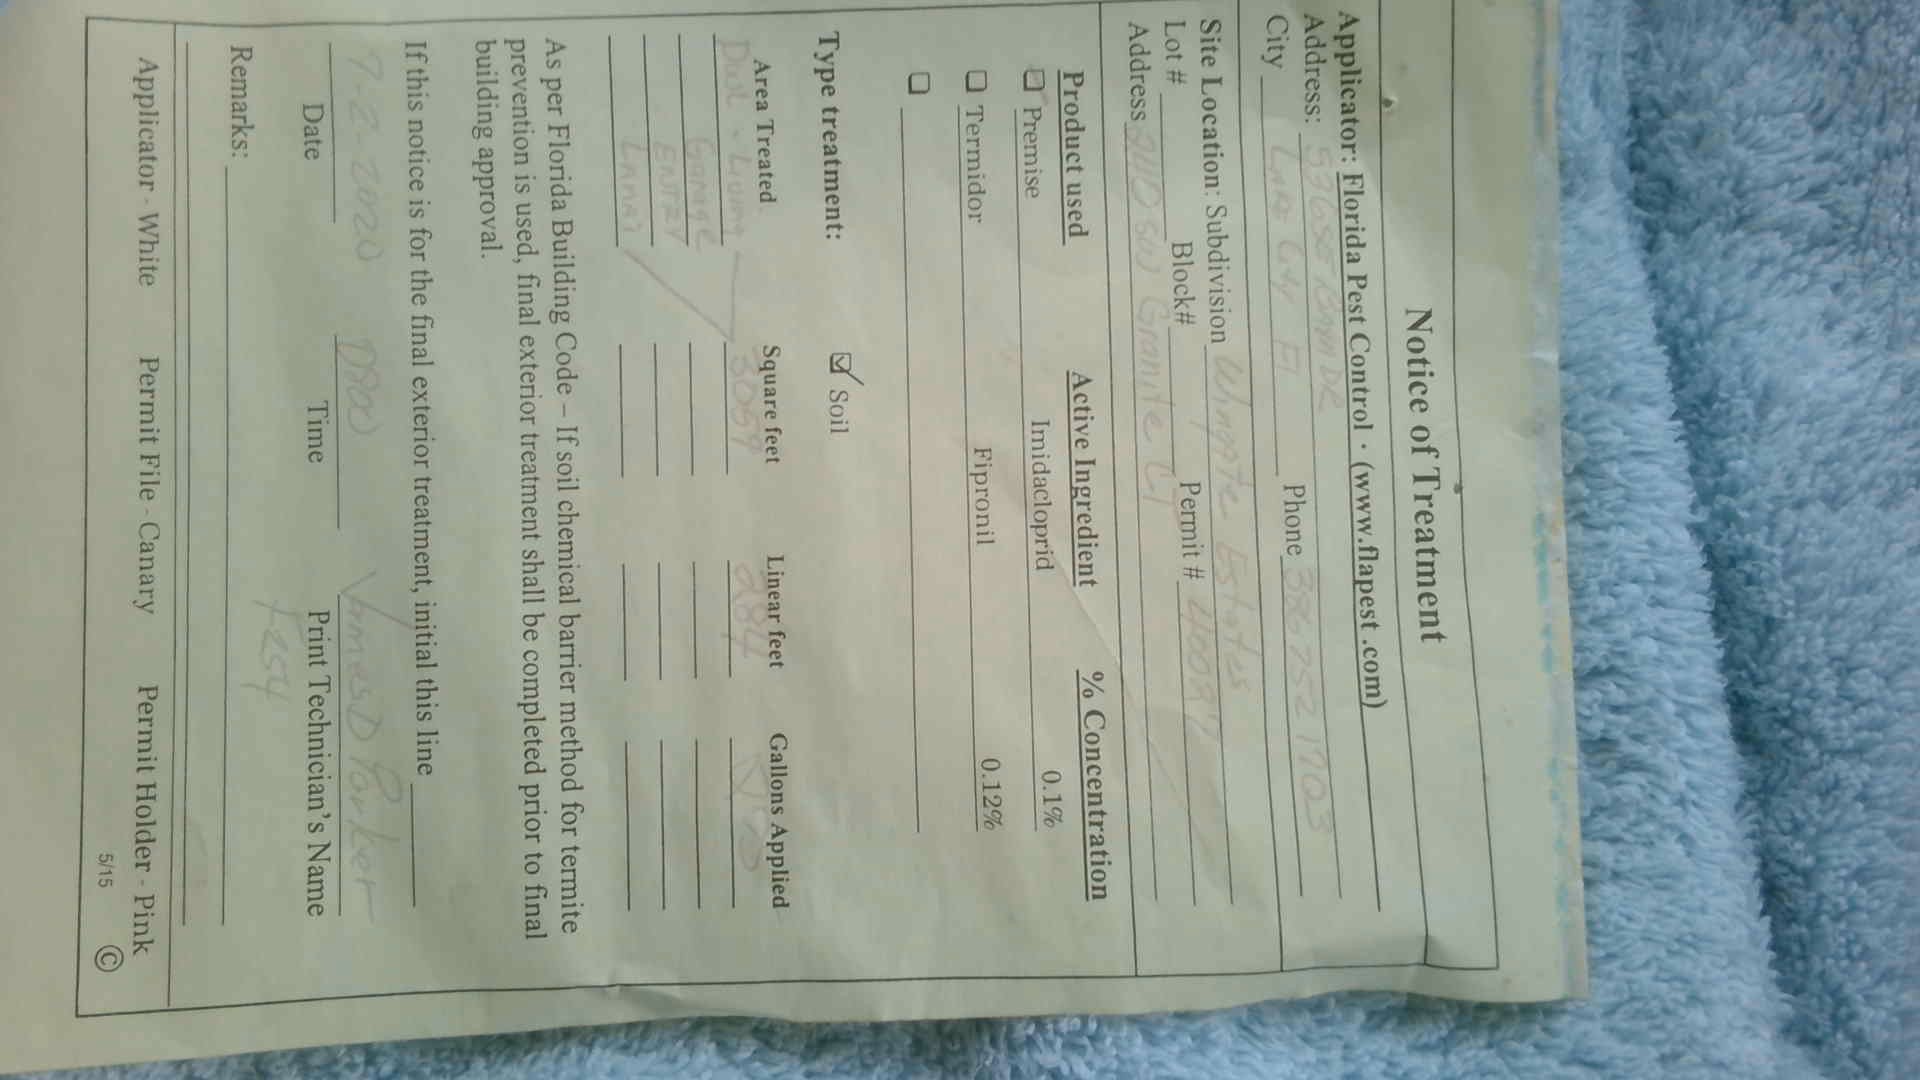 Notice of Treatment
Applicator: Florida Pest Control · (www.flapest.com)
Address: 536 SE Baya Dr
City Lake City Fl Phone 386 752 1703
Site Location: Subdivision Wingate Estates
Lot # Block# Permit #
Address SW Granite Ct
Product used Active Ingredient % Concentration
☑ Premise Imidacloprid 0.1%
☐ Termidor Fipronil 0.12%
☐
Type treatment: ☑ Soil
Area Treated Square feet Linear feet Gallons Applied
Living 3059 284
Garage
ENTRY
Lanai
As per Florida Building Code – If soil chemical barrier method for termite
prevention is used, final exterior treatment shall be completed prior to final
building approval.
If this notice is for the final exterior treatment, initial this line
7-2-2020 0900 James D Parker
Date Time Print Technician's Name
F254
Remarks:
Applicator - White Permit File - Canary Permit Holder - Pink
5/15 ©